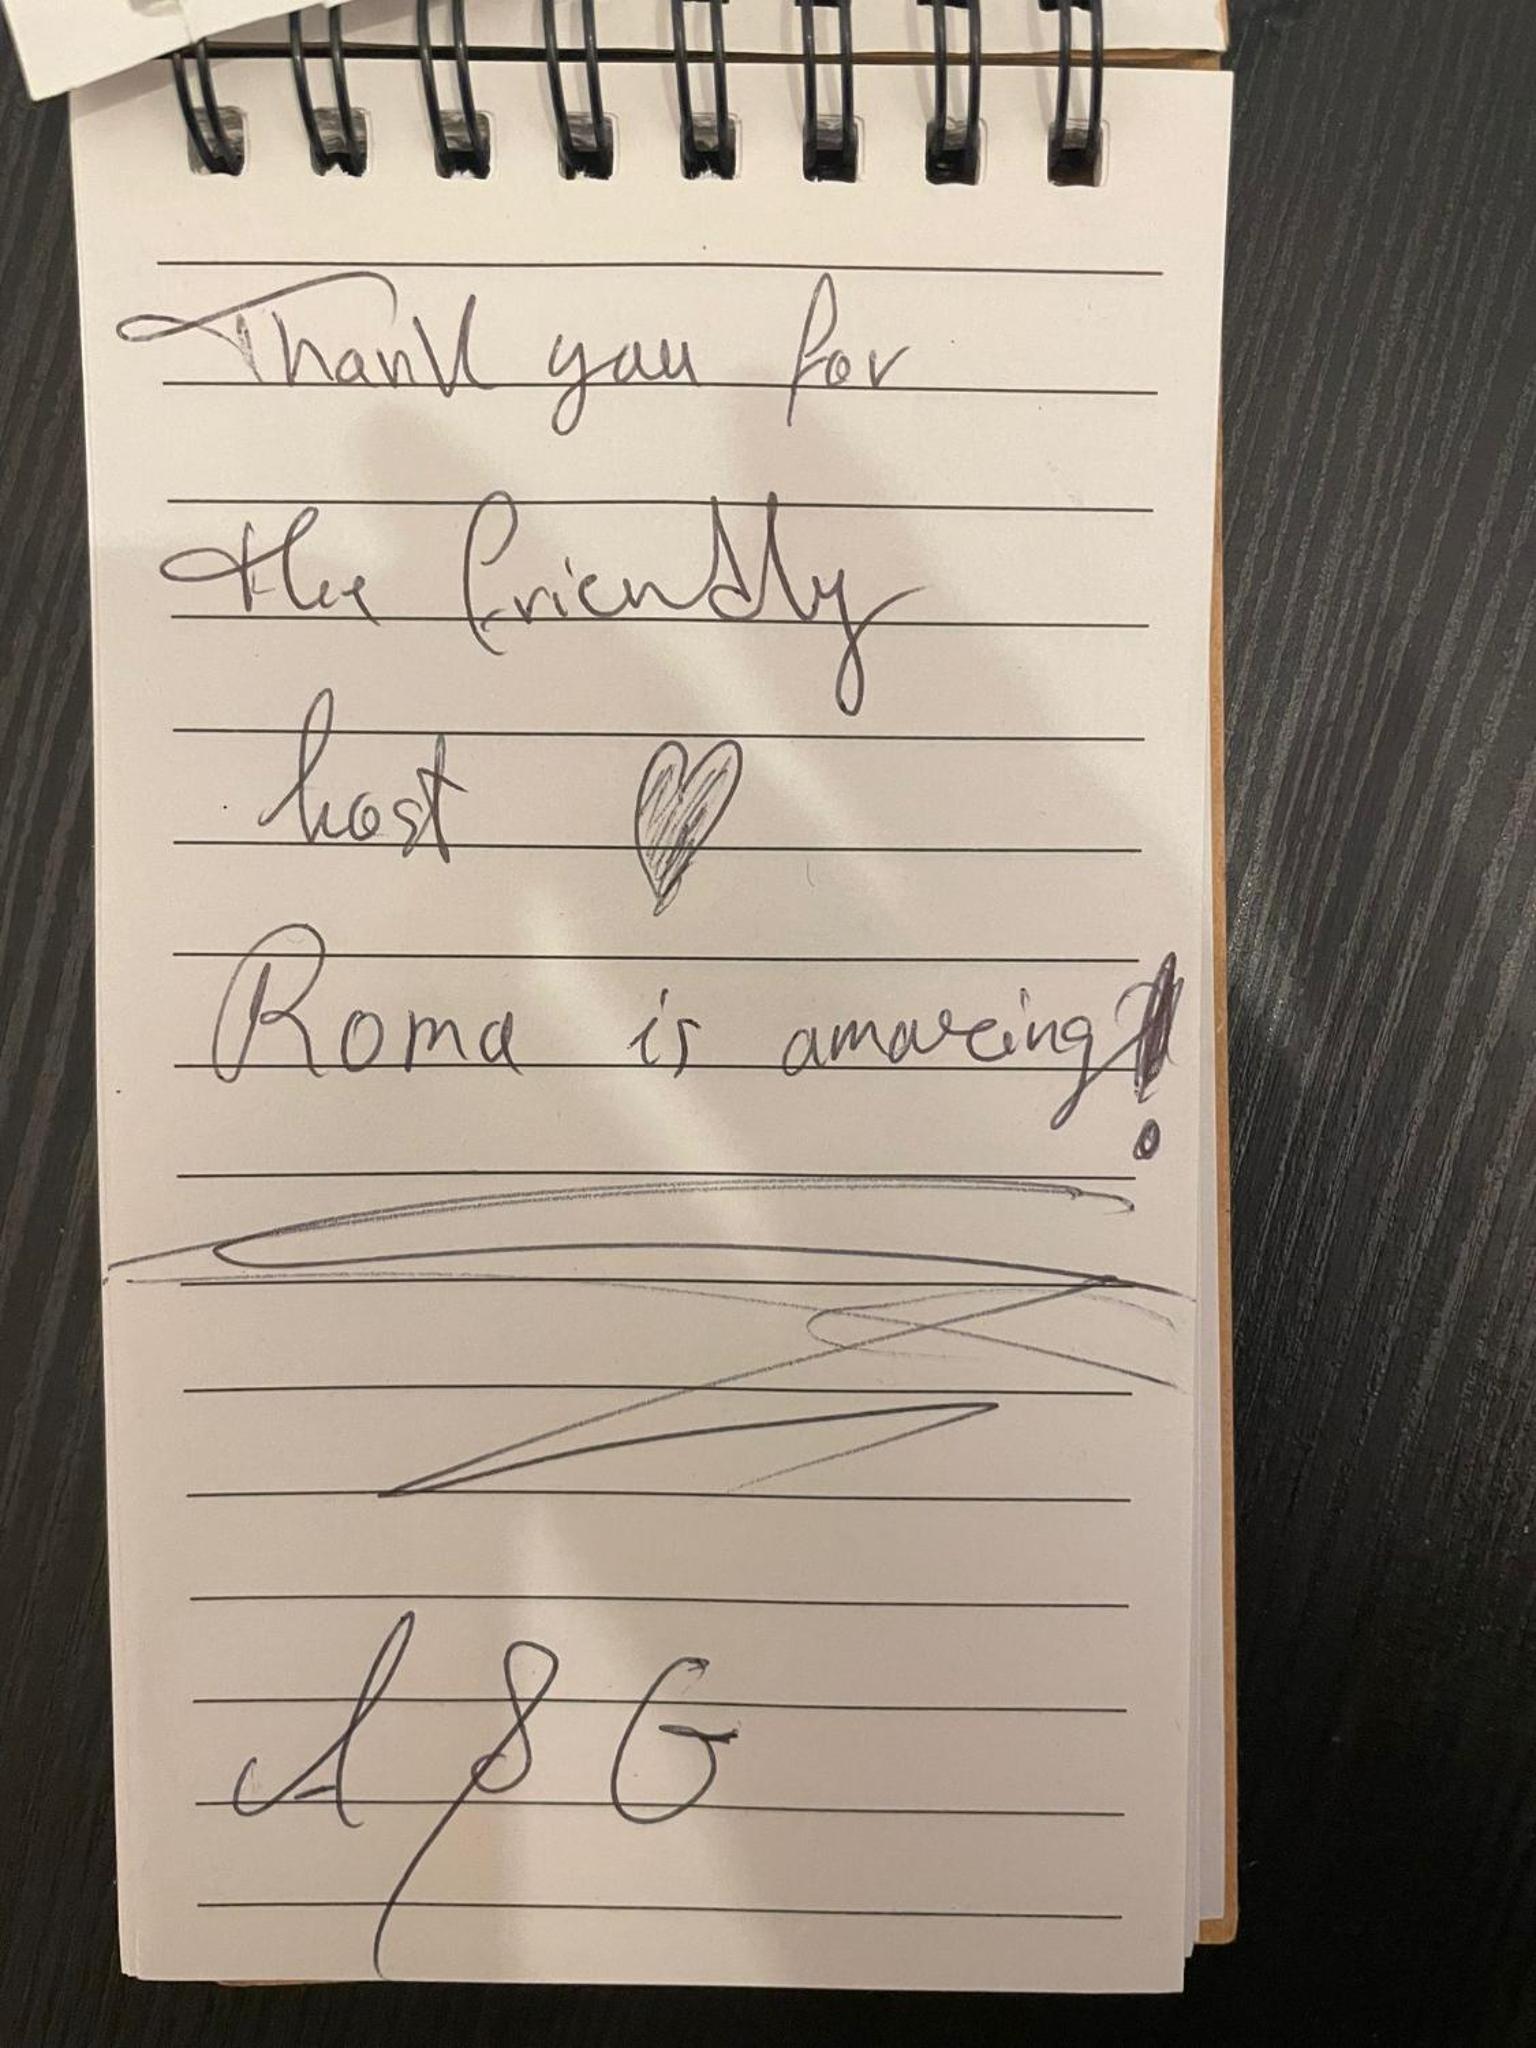 Thank you for
the friendly
host ♥
Roma is amazing!
A & G